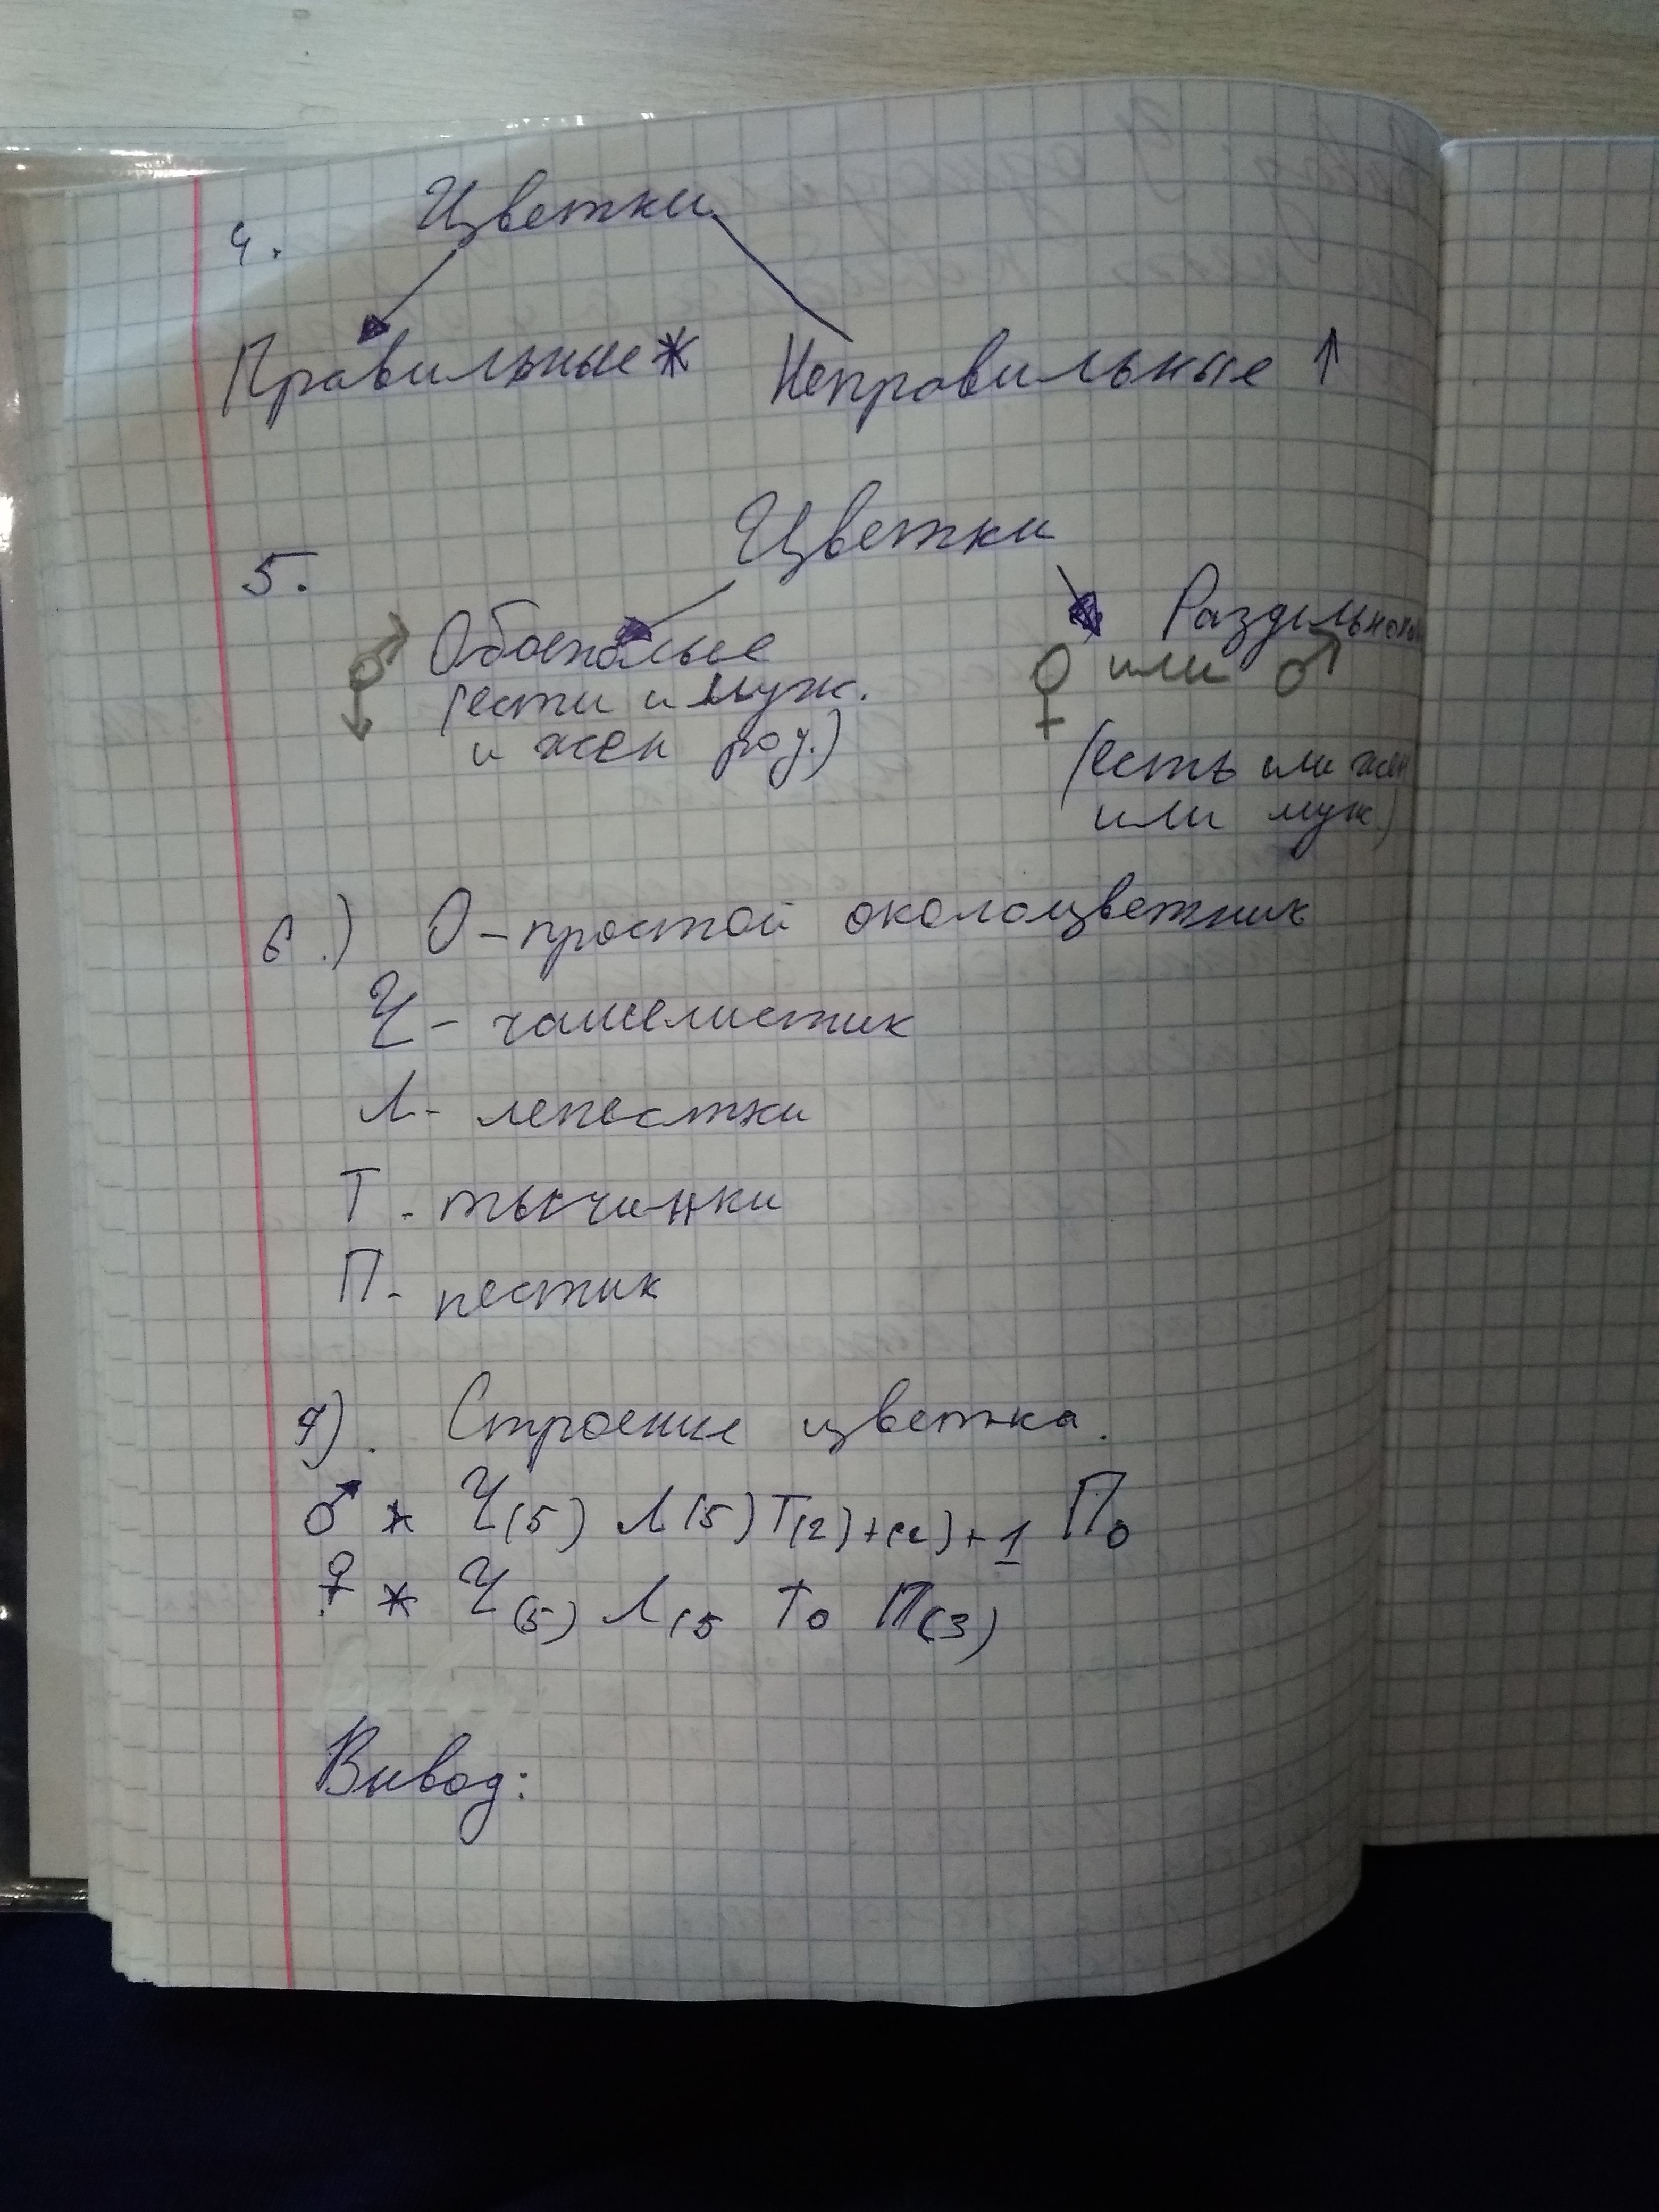 4. Цветки
Правильные * Неправильные ↑
5. Цветки
⚥ Обоеполые
(ести и муж.
и жен род.)
Раздельнопол
♀ или ♂
(есть или жен
или муж)
6.) О - простой околоцветник
Ч - чашелистик
Л - лепестки
Т - тычинки
П - пестик
7). Строение цветка.
♂ * Ч(5) Л(5) Т(2)+(2)+1 П0
♀ * Ч(5) Л(5 Т0 П(3)
Вывод: